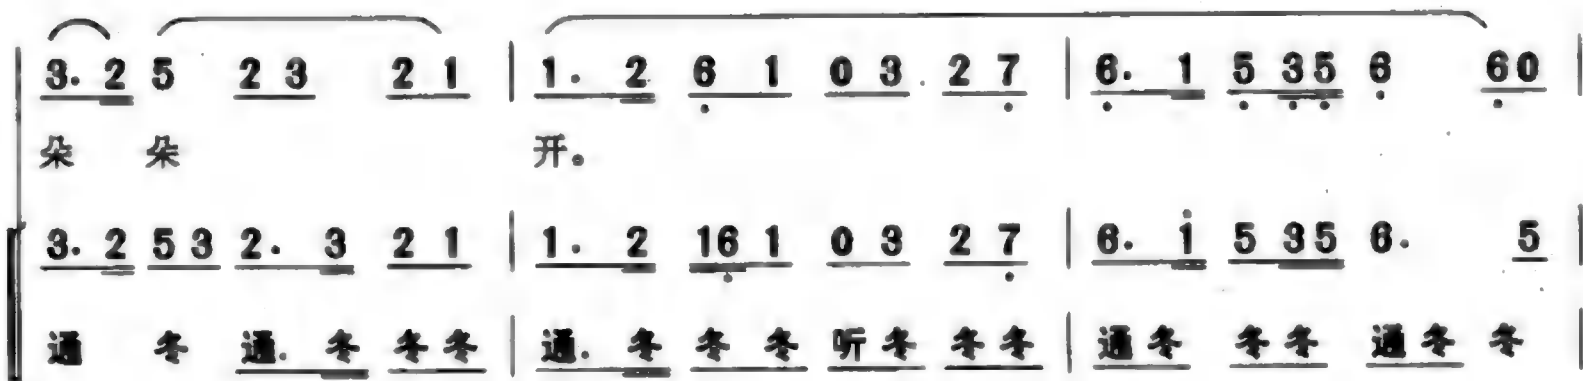 3. 2 5 2 3 2 1 | 1. 2 6̣ 1 0 3 2 7̣ | 6̣. 1 5̣ 3̣5̣ 6̣ 6̣0 |
朵 朵 开。
3. 2 5 3 2. 3 2 1 | 1. 2 16̣ 1 0 3 2 7̣ | 6. i̇ 5 35 6. 5 |
通 冬 通. 冬 冬冬 | 通. 冬 冬 冬 听冬 冬冬 | 通冬 冬冬 通冬 冬 |